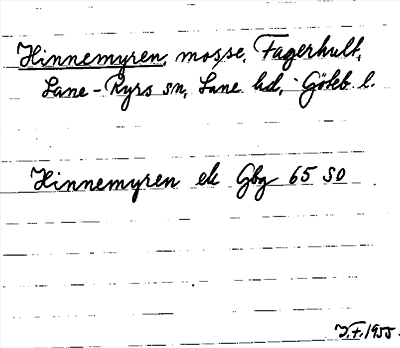 Hinnemyren, mosse, Fagerhult,
Lane-Ryrs sn, Lane hd, Göteb. l.
Hinnemyren ek Gbg 65 SO
J.+.1955.